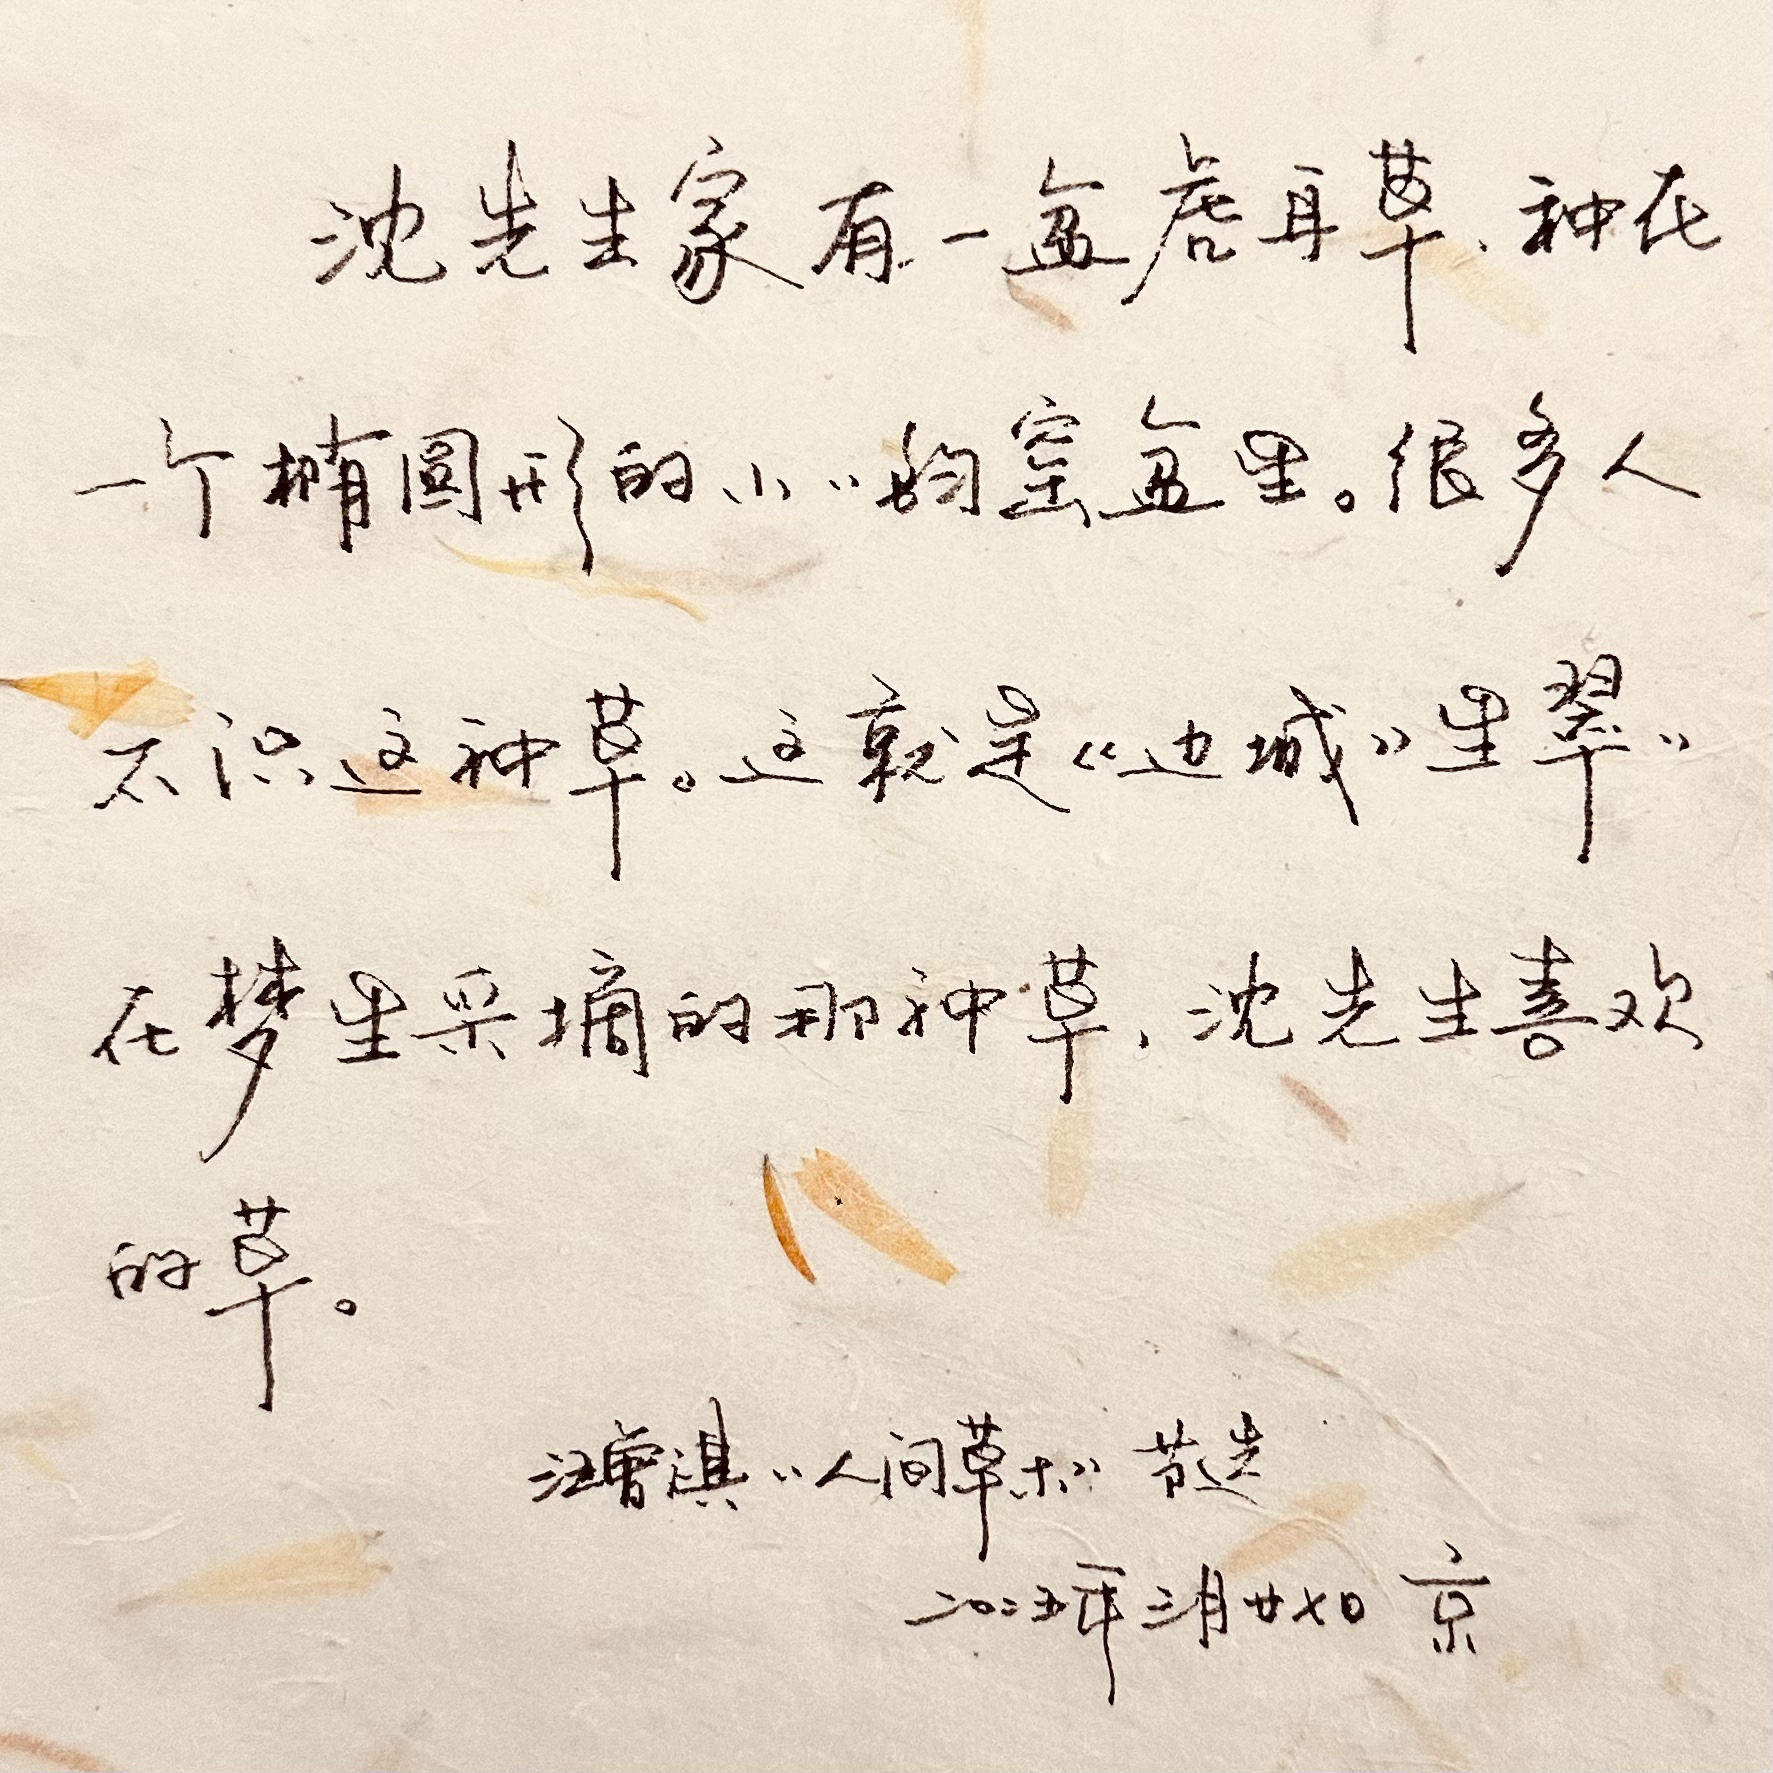 沈先生家有一盆虎耳草，种在
一个椭圆形的小小钧窑盆里。很多人
不识这种草。这就是《边城》里翠翠
在梦里采摘的那种草，沈先生喜欢
的草。
汪曾祺《人间草木》节选
二〇二五年三月廿 日 京